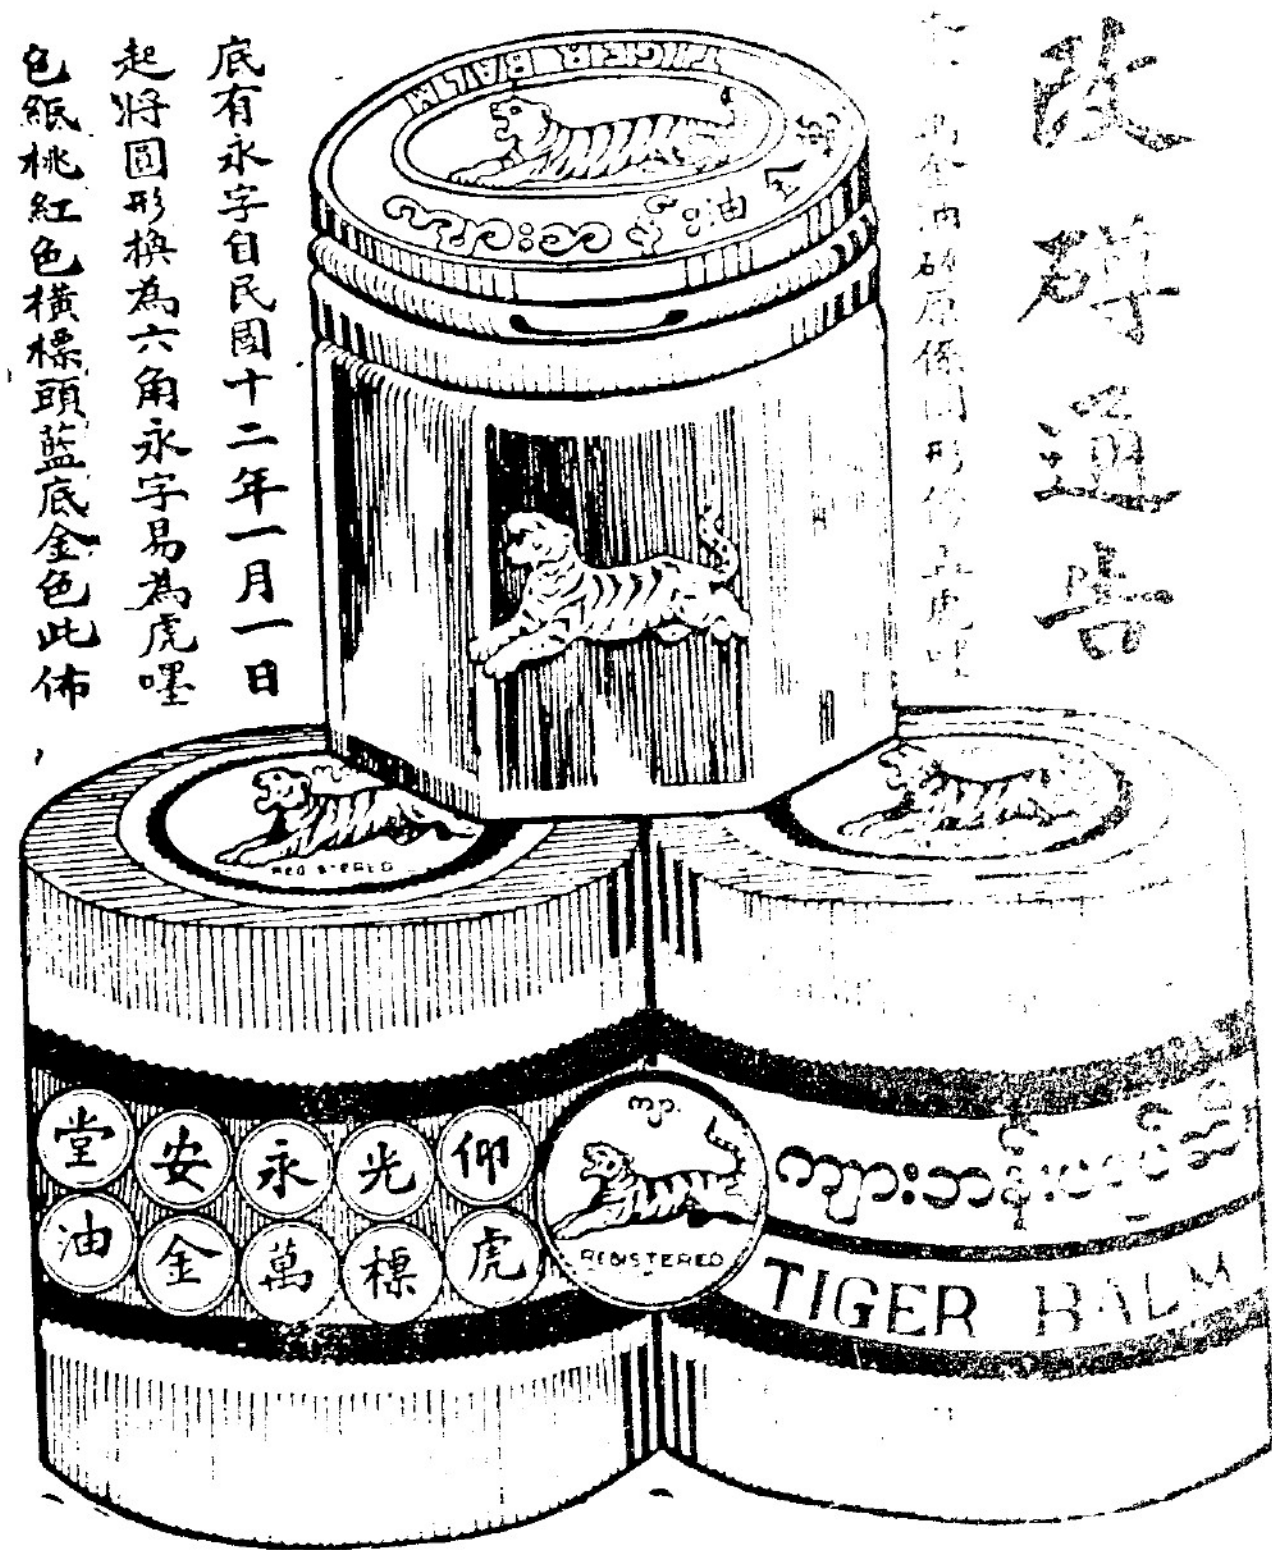 改 通告
金油 原係圓形 虎嘜
底有永字自民國十二年一月一日
起將圓形換為六角永字易為虎嘜
色紙桃紅色橫標頭藍底金色此佈
TIGER BALM
萬金油
REGISTERED
仰光永安堂
虎標萬金油
REGISTERED
TIGER BALM